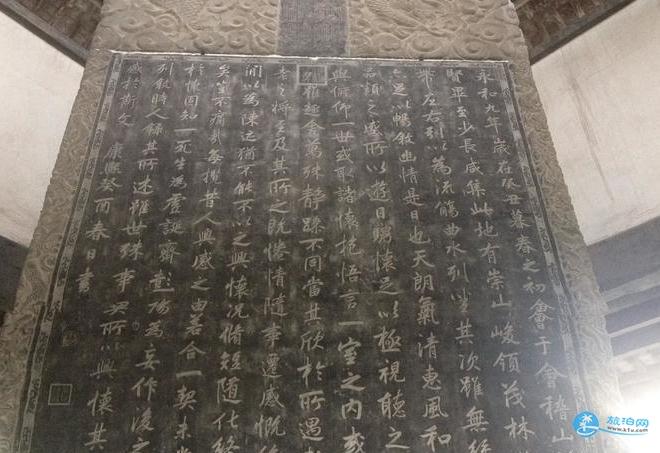 永和九年歲在癸丑暮春之初會于會稽山
賢畢至少長咸集此地有崇山峻領茂林
帶左右引以為流觴曲水列坐其次雖無絲
足以暢敘幽情是日也天朗氣清惠風和
品類之盛所以遊目騁懷足以極視聽之
與俯仰一世或取諸懷抱悟言一室之內或
雖趣舍萬殊靜躁不同當其欣於所遇
老之將至及其所之既惓情隨事遷感慨係
間以為陳迹猶不能不以之興懷況脩短隨化終
矣豈不痛哉每攬昔人興感之由若合一契未
於懷固知一死生為虛誕齊彭殤為妄作後之
列敘時人錄其所述雖世殊事異所以興懷其
感於斯文 康熙癸酉春日書
旅泊网
www.k1u.com